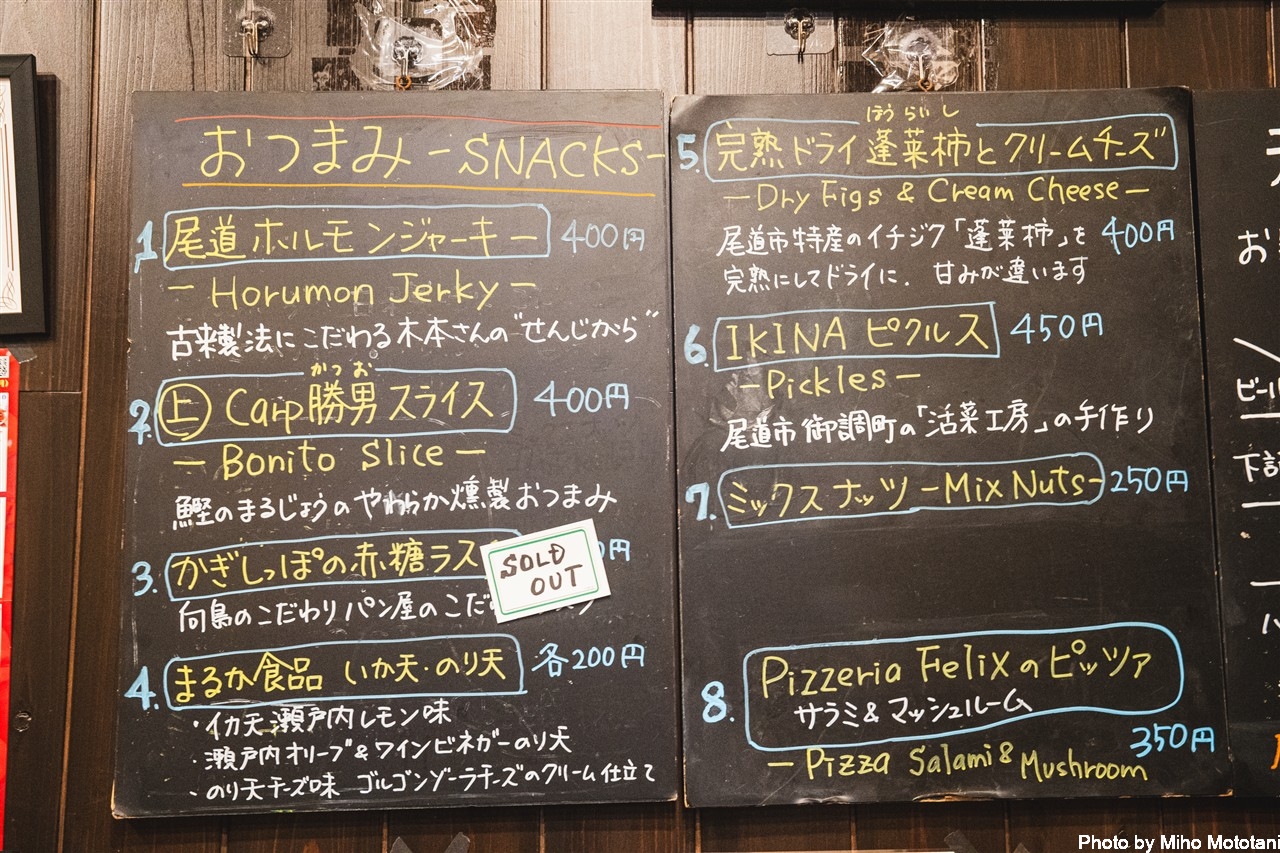 おつまみ -SNACKS-
1. 尾道ホルモンジャーキー 400円
- Horumon Jerky -
古来製法にこだわる木本さんの“せんじがら”
かつお
2. 上 Carp勝男スライス 400円
- Bonito Slice -
鰹のまるじょうのやわらか燻製おつまみ
3. かぎしっぽの赤糖ラス 円
SOLD
OUT
向島のこだわりパン屋のこだ
4. まるか食品 いか天・のり天 各200円
・イカ天瀬戸内レモン味
・瀬戸内オリーブ&ワインビネガーのり天
・のり天チーズ味 ゴルゴンゾーラチーズのクリーム仕立て
ほうらいし
5. 完熟ドライ蓬莱柿とクリームチーズ
- Dry Figs & Cream Cheese -
尾道市特産のイチジク「蓬莱柿」を 400円
完熟にしてドライに. 甘みが違います
6. IKINA ピクルス 450円
- Pickles -
尾道市御調町の「活菜工房」の手作り
7. ミックスナッツ -Mix Nuts- 250円
8. Pizzeria Felixのピッツァ
サラミ&マッシュルーム
350円
- Pizza Salami & Mushroom
お
ビール
下記
Photo by Miho Mototani